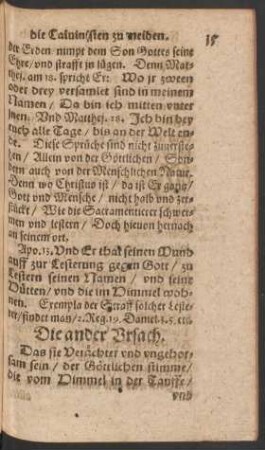 die Calvinisten zu meiden. 15
der Erden / nimpt dem Son Gottes seine
Ehre / und strafft in lügen. Denn Mat-
thej. am 18. spricht Er: Wo jr zween
oder drey versamlet sind in meinem
Namen / Da bin ich mitten vnter
jnen. Vnd Matthej. 28. Ich bin bey
euch alle Tage / bis an der Welt en-
de. Diese Sprüche sind nicht zuuerste-
hen / Allein von der Göttlichen / Son-
dern auch von der Menschlichen Natur.
Denn wo Christus ist / da ist Er gantz /
Gott vnd Mensche / nicht halb vnd zer-
stückt / Wie die Sacramentierer schwer-
men vnd lestern / Doch hieuon hernach
an seinem ort.
Apo. 13. Vnd Er that seinen Mund
auff zur Lesterung gegen Gott / zu
Lestern seinen Namen / vnd seine
Hütten / vnd die im Himmel woh-
nen. Exempla der Straff solcher Leste-
rer / findet man / 2. Reg. 19. Daniel. 3. 5. etc.
Die ander Vrsach.
Das sie Verächter vnd vngehor-
sam sein / der Göttlichen stimme /
die vom Himmel in der Tauffe /
vnd